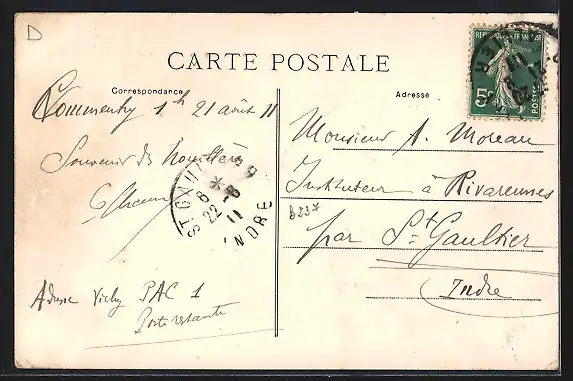 D
CARTE POSTALE
Correspondance
Adresse
REPUBLIQUE FRANÇAISE
5c
POSTES
Commentry 1h 21 août 11
Souvenir des houillères
Adresse Vichy PAC 1
Poste restante
ST GAULTIER
8
22-8
11
INDRE
Monsieur A. Moreau
Instituteur à Rivarennes
par St Gaultier
Indre